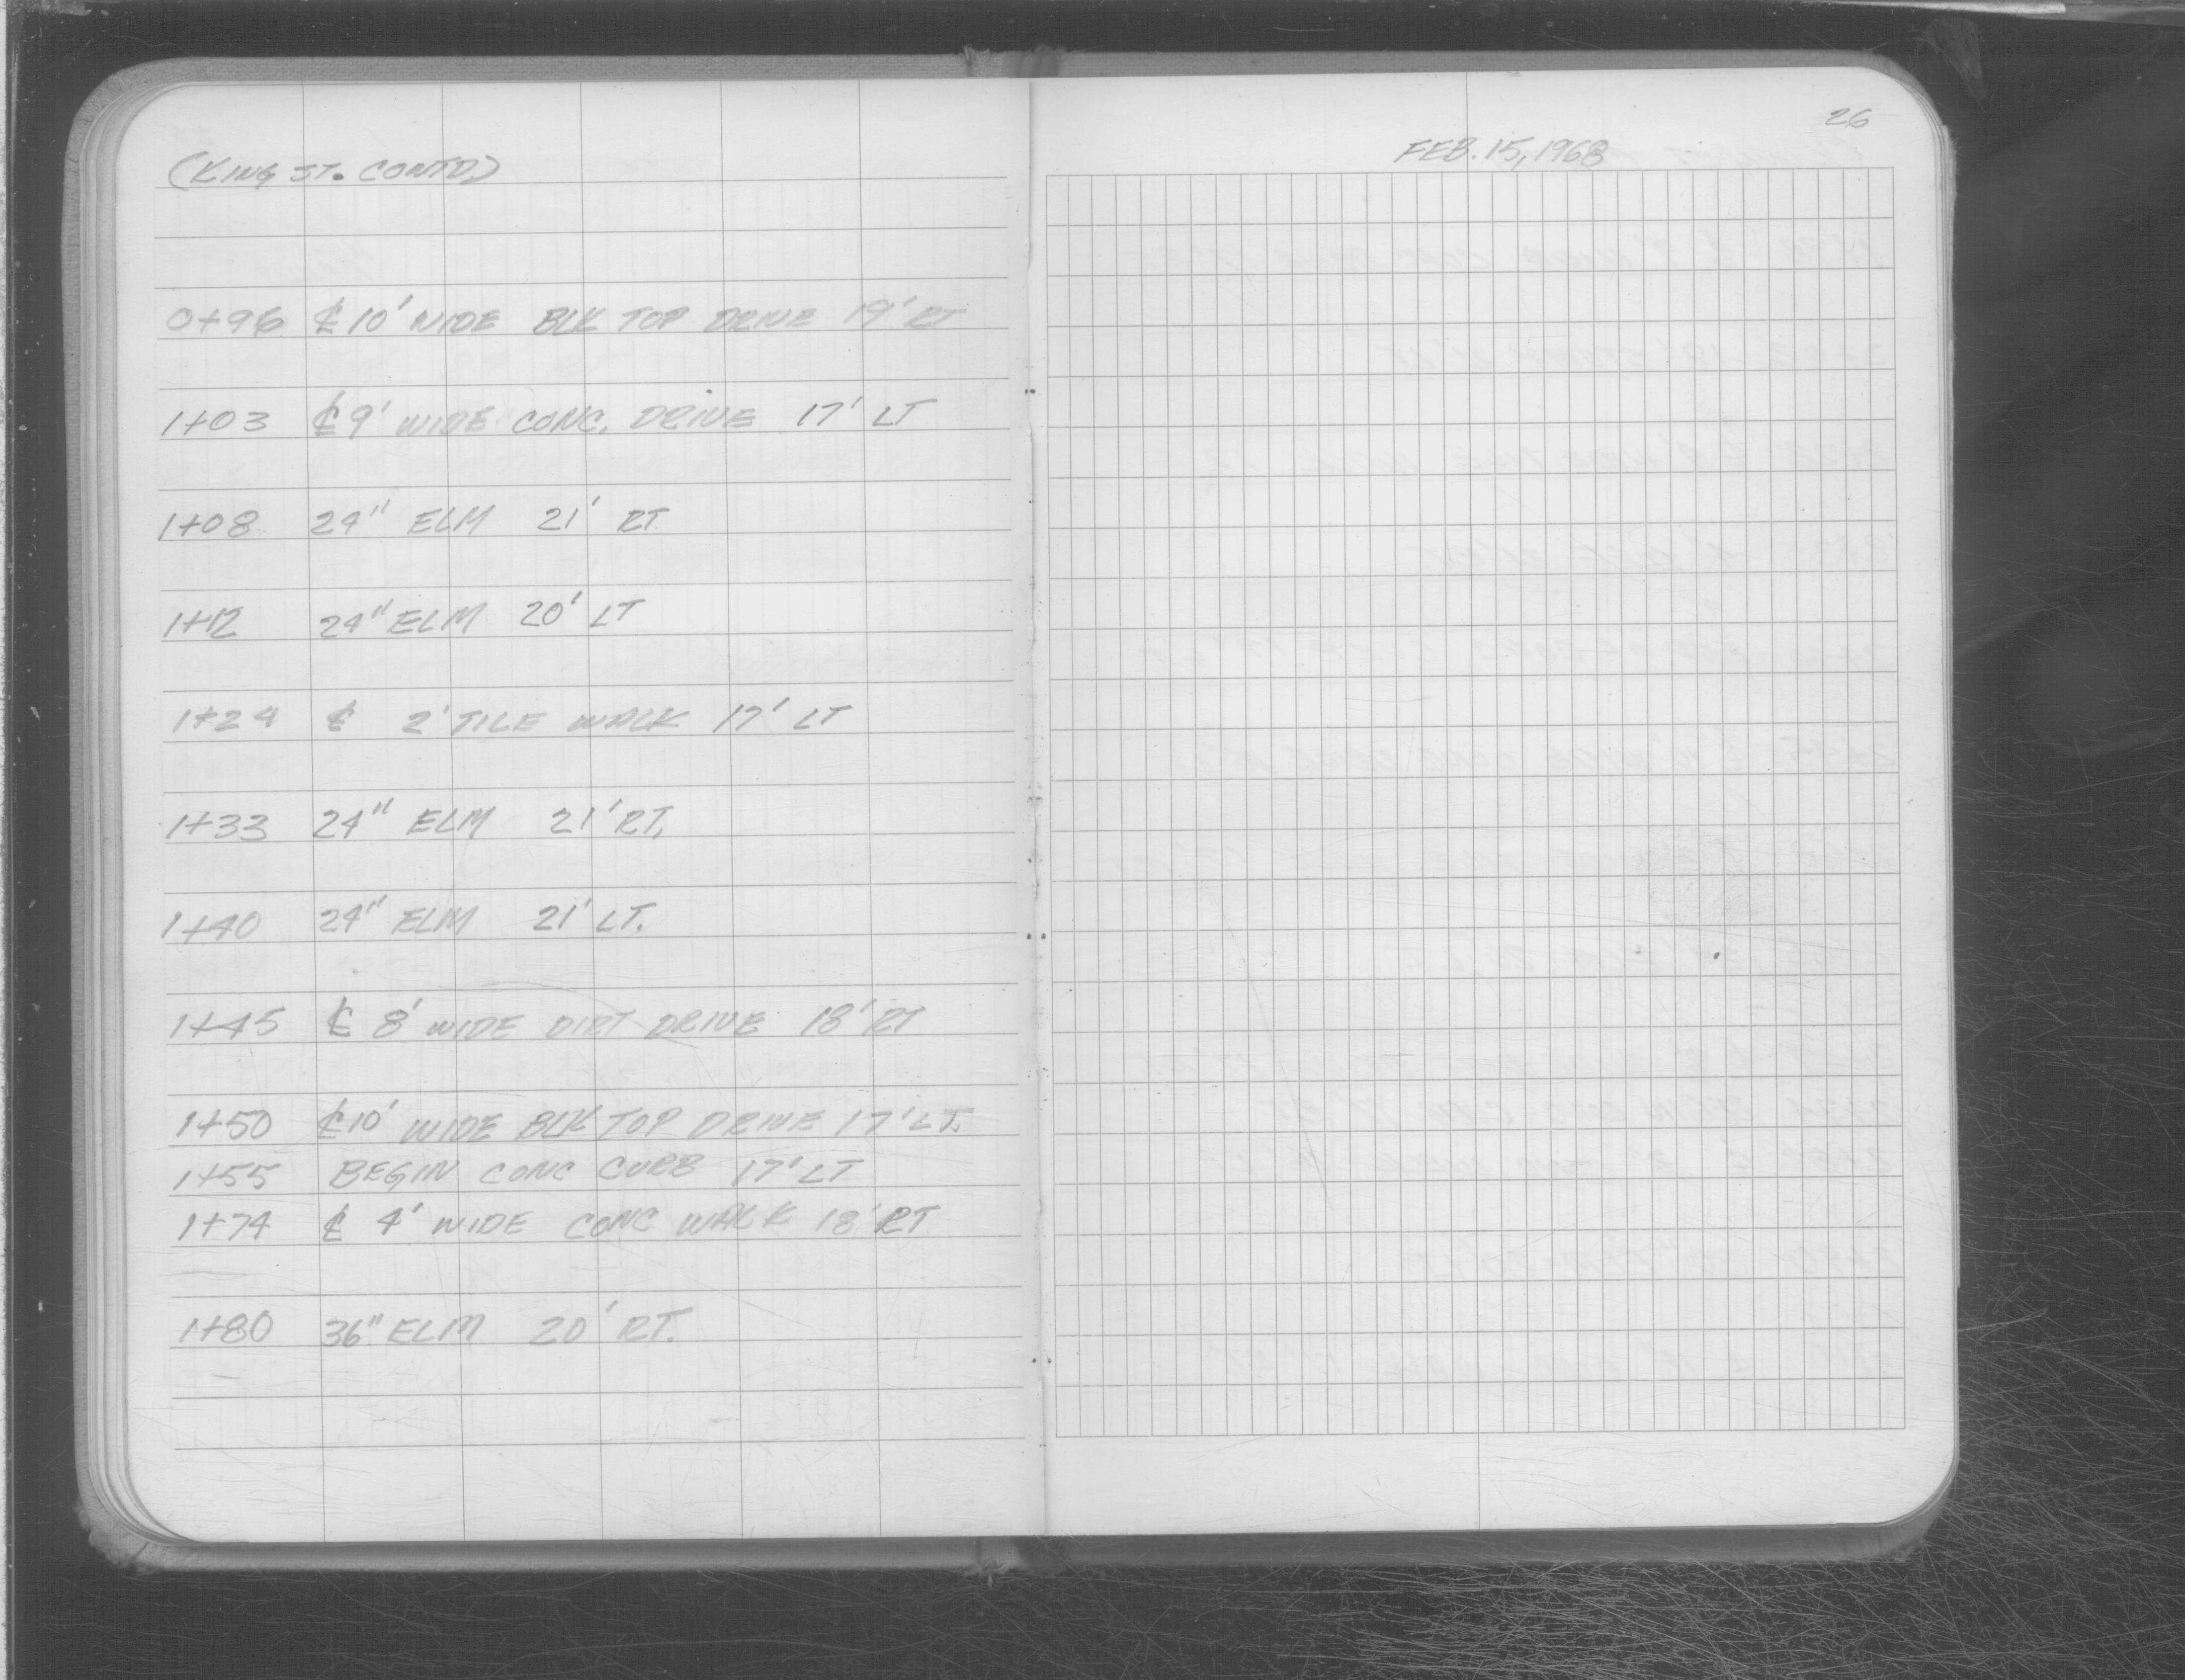 (KING ST. CONTD)
0+96 ℄ 10' WIDE BLK TOP DRIVE 19' RT
1+03 ℄ 9' WIDE CONC. DRIVE 17' LT
1+08 24" ELM 21' RT
1+12 24" ELM 20' LT
1+24 ℄ 2' TILE WALK 17' LT
1+33 24" ELM 21' RT.
1+40 24" ELM 21' LT.
1+45 ℄ 8' WIDE DIRT DRIVE 18' RT
1+50 ℄ 10' WIDE BLK TOP DRIVE 17' LT.
1+55 BEGIN CONC CURB 17' LT
1+74 ℄ 4' WIDE CONC WALK 18' RT
1+80 36" ELM 20' RT.
26
FEB. 15, 1968